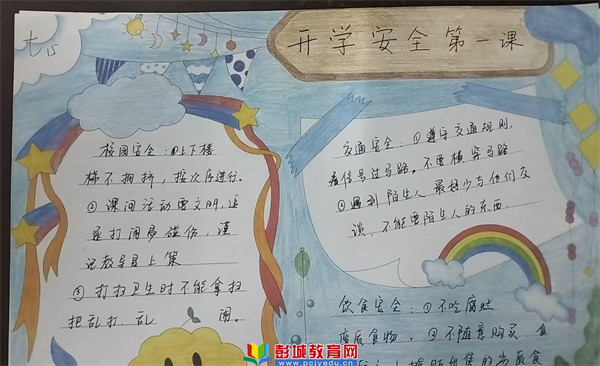 开学安全第一课
校园安全:①上下楼
梯不拥挤,按次序进行。
②课间活动要文明,追
逐打闹易碰伤,谨
记教导
③打扫卫生时不能拿扫
把乱打、乱
交通安全:①遵守交通规则,
看信号过马路。不要横穿马路
②遇到陌生人最好少与他们交
谈,不能要陌生人的东西.
饮食安全:①不吃腐烂
变质食物,②不随意购买、食
彭城教育网
www.pcjyedu.cn